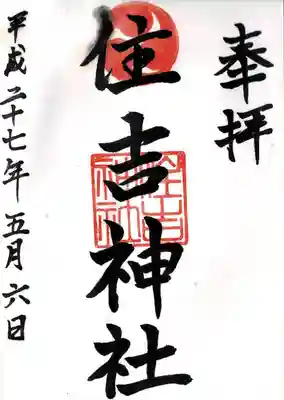 奉拝
住吉神社
住吉神社
平成二十七年五月六日